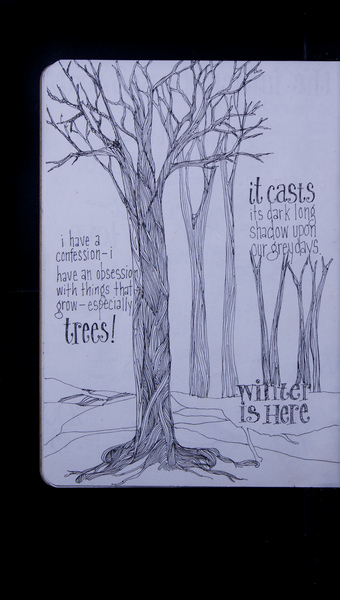 i have a
confession-i
have an obsession
with things that
grow-especially
trees!
it casts
its dark long
shadow upon
our grey days.
winter
is Here